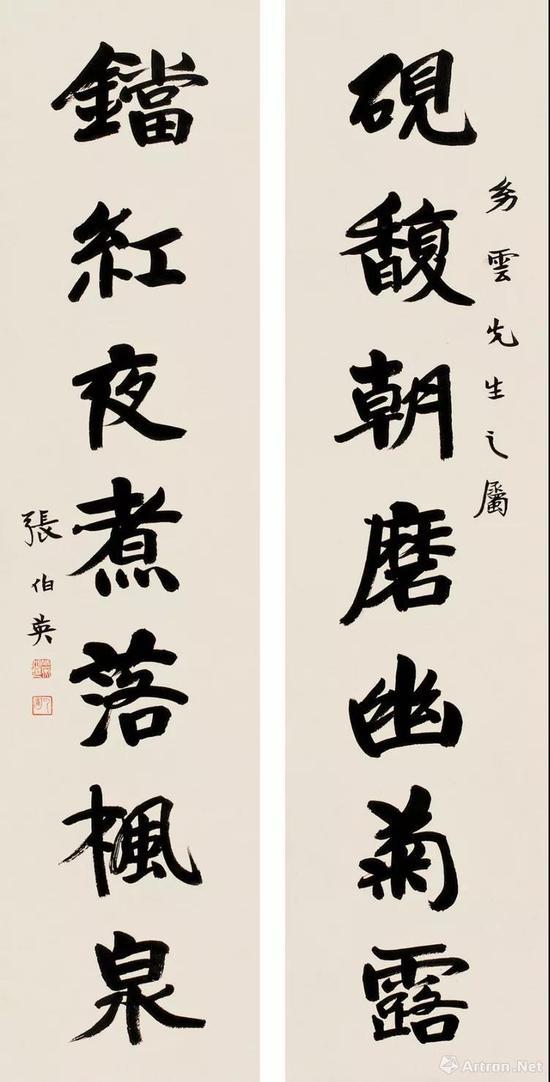 硯馥朝磨幽菊露
雲先生之屬
鐺紅夜煮落楓泉
張伯英
Artron.Net